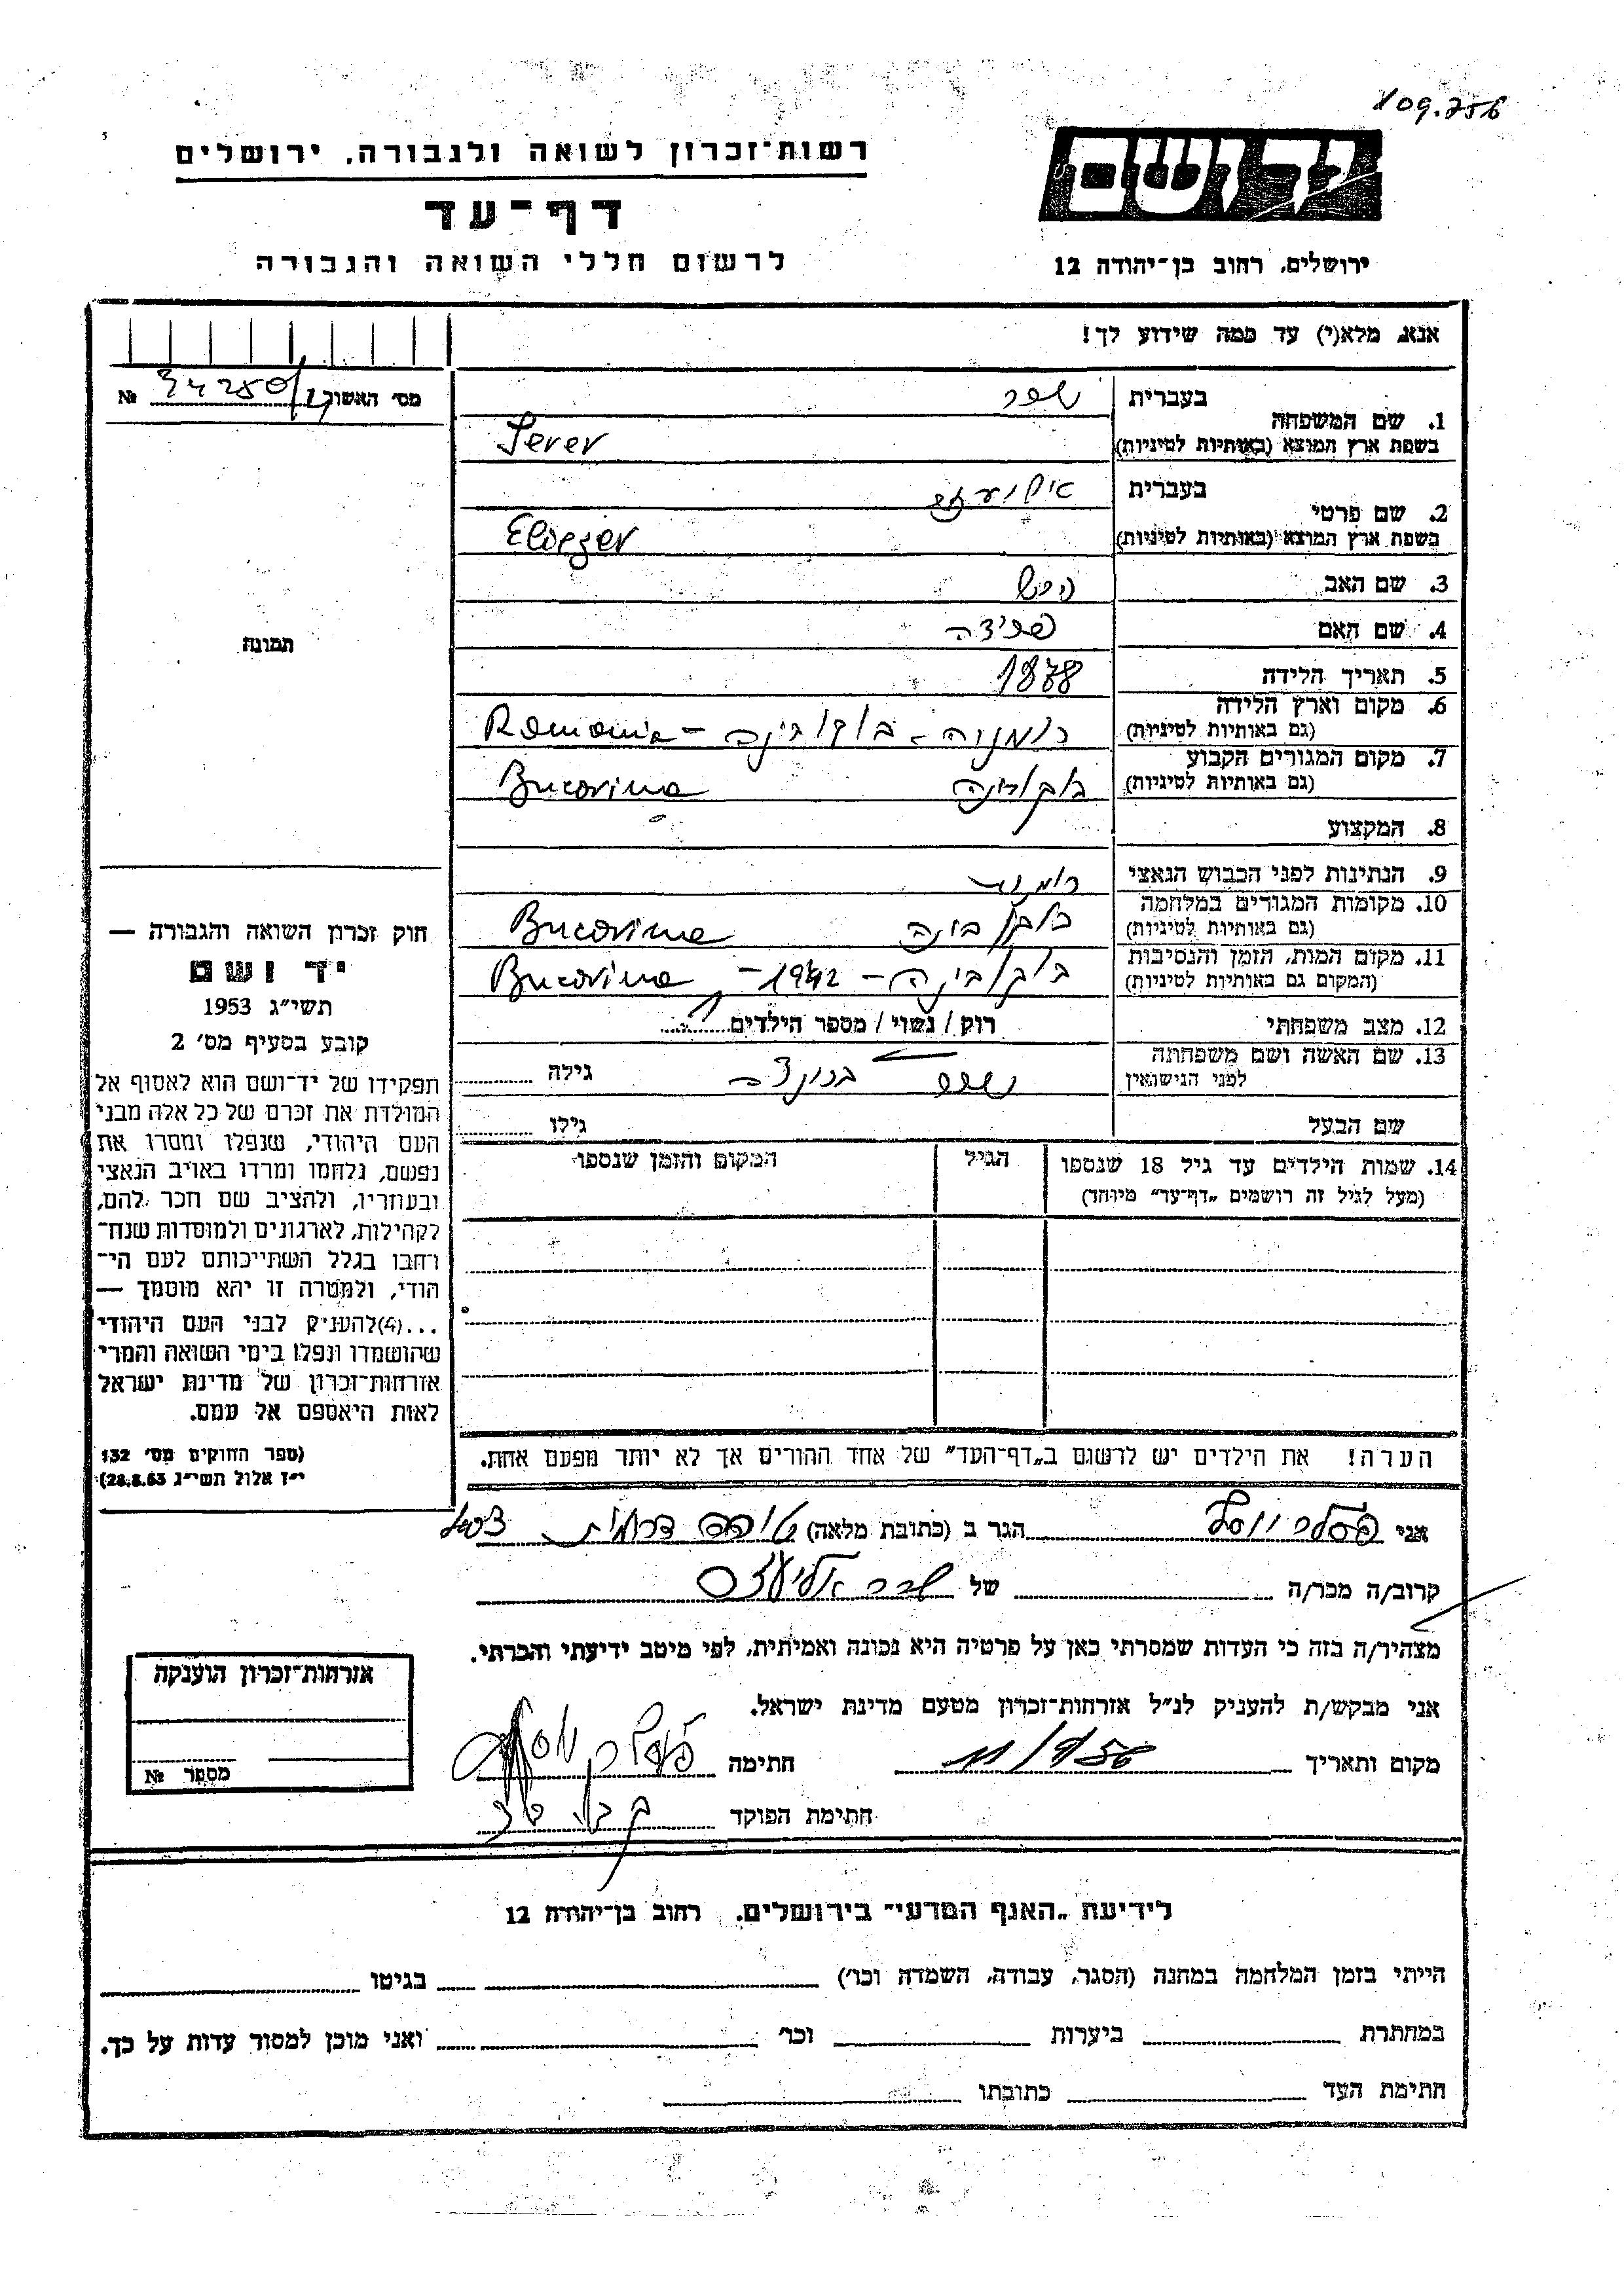 109.756
רשות־זכרון לשואה ולגבורה, ירושלים
יד ושם
דף־עד
לרשום חללי השואה והגבורה
ירושלים, רחוב בן־יהודה 12
אנא, מלא(י) עד כמה שידוע לך!
מס' האשור № 34250/
1. שם המשפחה
בעברית
בשפת ארץ המוצא (באותיות לטיניות) Serer
2. שם פרטי
בעברית אליעזר
בשפת ארץ המוצא (באותיות לטיניות) Eliezer
3. שם האב הירש
4. שם האם
תמונה
5. תאריך הלידה 1878
6. מקום וארץ הלידה
(גם באותיות לטיניות) רומניה - בוקובינה - Romania
7. מקום המגורים הקבוע
(גם באותיות לטיניות) בוקובינה Bucovina
8. המקצוע
9. הנתינות לפני הכבוש הנאצי רומנית
10. מקומות המגורים במלחמה
(גם באותיות לטיניות) בוקובינה Bucovina
11. מקום המות, הזמן והנסיבות
(המקום גם באותיות לטיניות) בוקובינה - 1942 - Bucovina
12. מצב משפחתי רוק / נשוי / מספר הילדים
13. שם האשה ושם משפחתה
לפני הנישואין
גילה
שם הבעל
גילו
14. שמות הילדים עד גיל 18 שנספו
(מעל לגיל זה רושמים „דף־עד" מיוחד)
הגיל
המקום והזמן שנספו
הערה! את הילדים יש לרשום ב„דף־העד" של אחד ההורים אך לא יותר מפעם אחת.
חוק זכרון השואה והגבורה —
יד ושם
תשי"ג 1953
קובע בסעיף מס' 2
תפקידו של יד־ושם הוא לאסוף אל
המולדת את זכרם של כל אלה מבני
העם היהודי, שנפלו ומסרו את
נפשם, נלחמו ומרדו באויב הנאצי
ובעוזריו, ולהציב שם וזכר להם,
לקהילות, לארגונים ולמוסדות שנח־
רחבו בגלל השתייכותם לעם הי־
הודי, ולמטרה זו יהא מוסמך —
...(4)להעניק לבני העם היהודי
שהושמדו ונפלו בימי השואה והמרי
אזרחות־זכרון של מדינת ישראל
לאות היאספם אל עמם.
(ספר החוקים מס' 132
י"ז אלול תשי"ג 28.8.53)
אני יוסף הגר ב (כתובת מלאה)
קרוב/ה מכר/ה של אליעזר
מצהיר/ה בזה כי העדות שמסרתי כאן על פרטיה היא נכונה ואמיתית, לפי מיטב ידיעתי והכרתי.
אני מבקש/ת להעניק לנ"ל אזרחות־זכרון מטעם מדינת ישראל.
מקום ותאריך חתימה
חתימת הפוקד
אזרחות־זכרון הוענקה
מספר №
לידיעת „האגף המדעי" בירושלים, רחוב בן־יהודה 12
הייתי בזמן המלחמה במחנה (הסגר, עבודה, השמדה וכו') בגיטו
במחתרת ביערות וכו' ואני מוכן למסור עדות על כך.
חתימת העד כתובתו